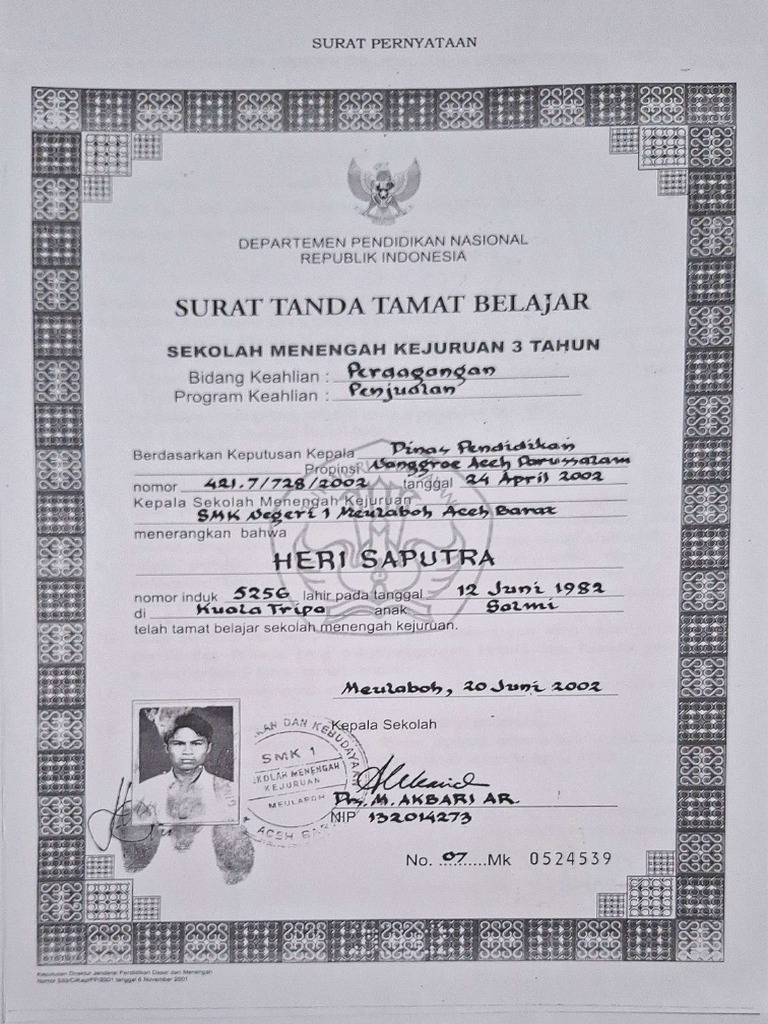 SURAT PERNYATAAN
DEPARTEMEN PENDIDIKAN NASIONAL
REPUBLIK INDONESIA
SURAT TANDA TAMAT BELAJAR
SEKOLAH MENENGAH KEJURUAN 3 TAHUN
Bidang Keahlian : Perdagangan
Program Keahlian : Penjualan
Berdasarkan Keputusan Kepala Dinas Pendidikan
Propinsi Nanggroe Aceh Darussalam
nomor 421.7/728/2002 tanggal 24 April 2002
Kepala Sekolah Menengah Kejuruan
SMK Negeri 1 Meulaboh Aceh Barat
menerangkan bahwa
HERI SAPUTRA
nomor induk 5256 lahir pada tanggal 12 Juni 1982
di Kuala Tripa anak Salmi
telah tamat belajar sekolah menengah kejuruan.
Meulaboh, 20 Juni 2002
Kepala Sekolah
DAN KEBUDAYAAN
SMK 1
SEKOLAH MENENGAH
KEJURUAN
MEULABOH
ACEH BARAT
Drs. M. AKBARI AR.
NIP 132014273
No. 07 Mk 0524539
Keputusan Direktur Jenderal Pendidikan Dasar dan Menengah
tanggal 6 November 2001